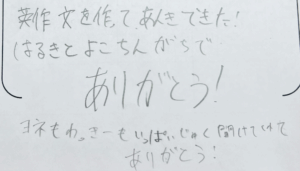 英作文を作って、あんきできた!
はるきとよこちんがちで
ありがとう!
ヨネもわっきーもいっぱいじゅく開けてくれて
ありがとう!